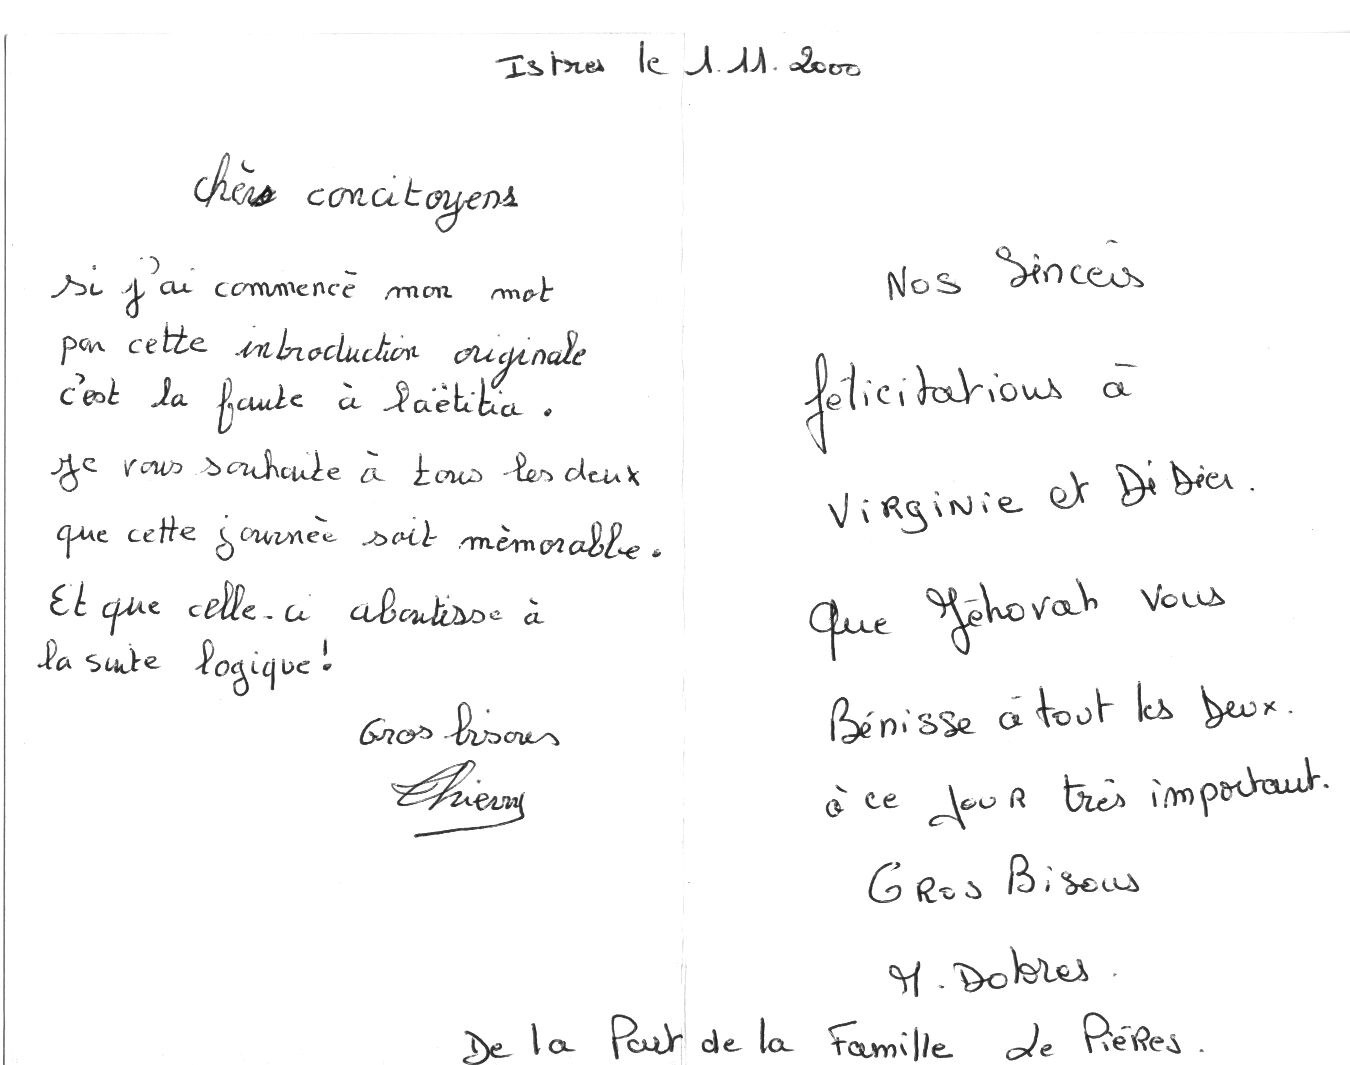 Istres le 1.11.2000
chèrs concitoyens
si j'ai commencé mon mot
par cette introduction originale
c'est la faute à laëtitia.
Je vous souhaite à tous les deux
que cette journèe soit mèmorable.
Et que celle-ci aboutisse à
la suite logique!
Gros bisous
Thierry
Nos Sincèis
félicitations à
Virginie et Didier.
Que Jéhovah vous
Bénisse à tout les Deux.
à ce jour très important.
Gros Bisous
M. Dolores.
De la Part de la Famille de Pières.